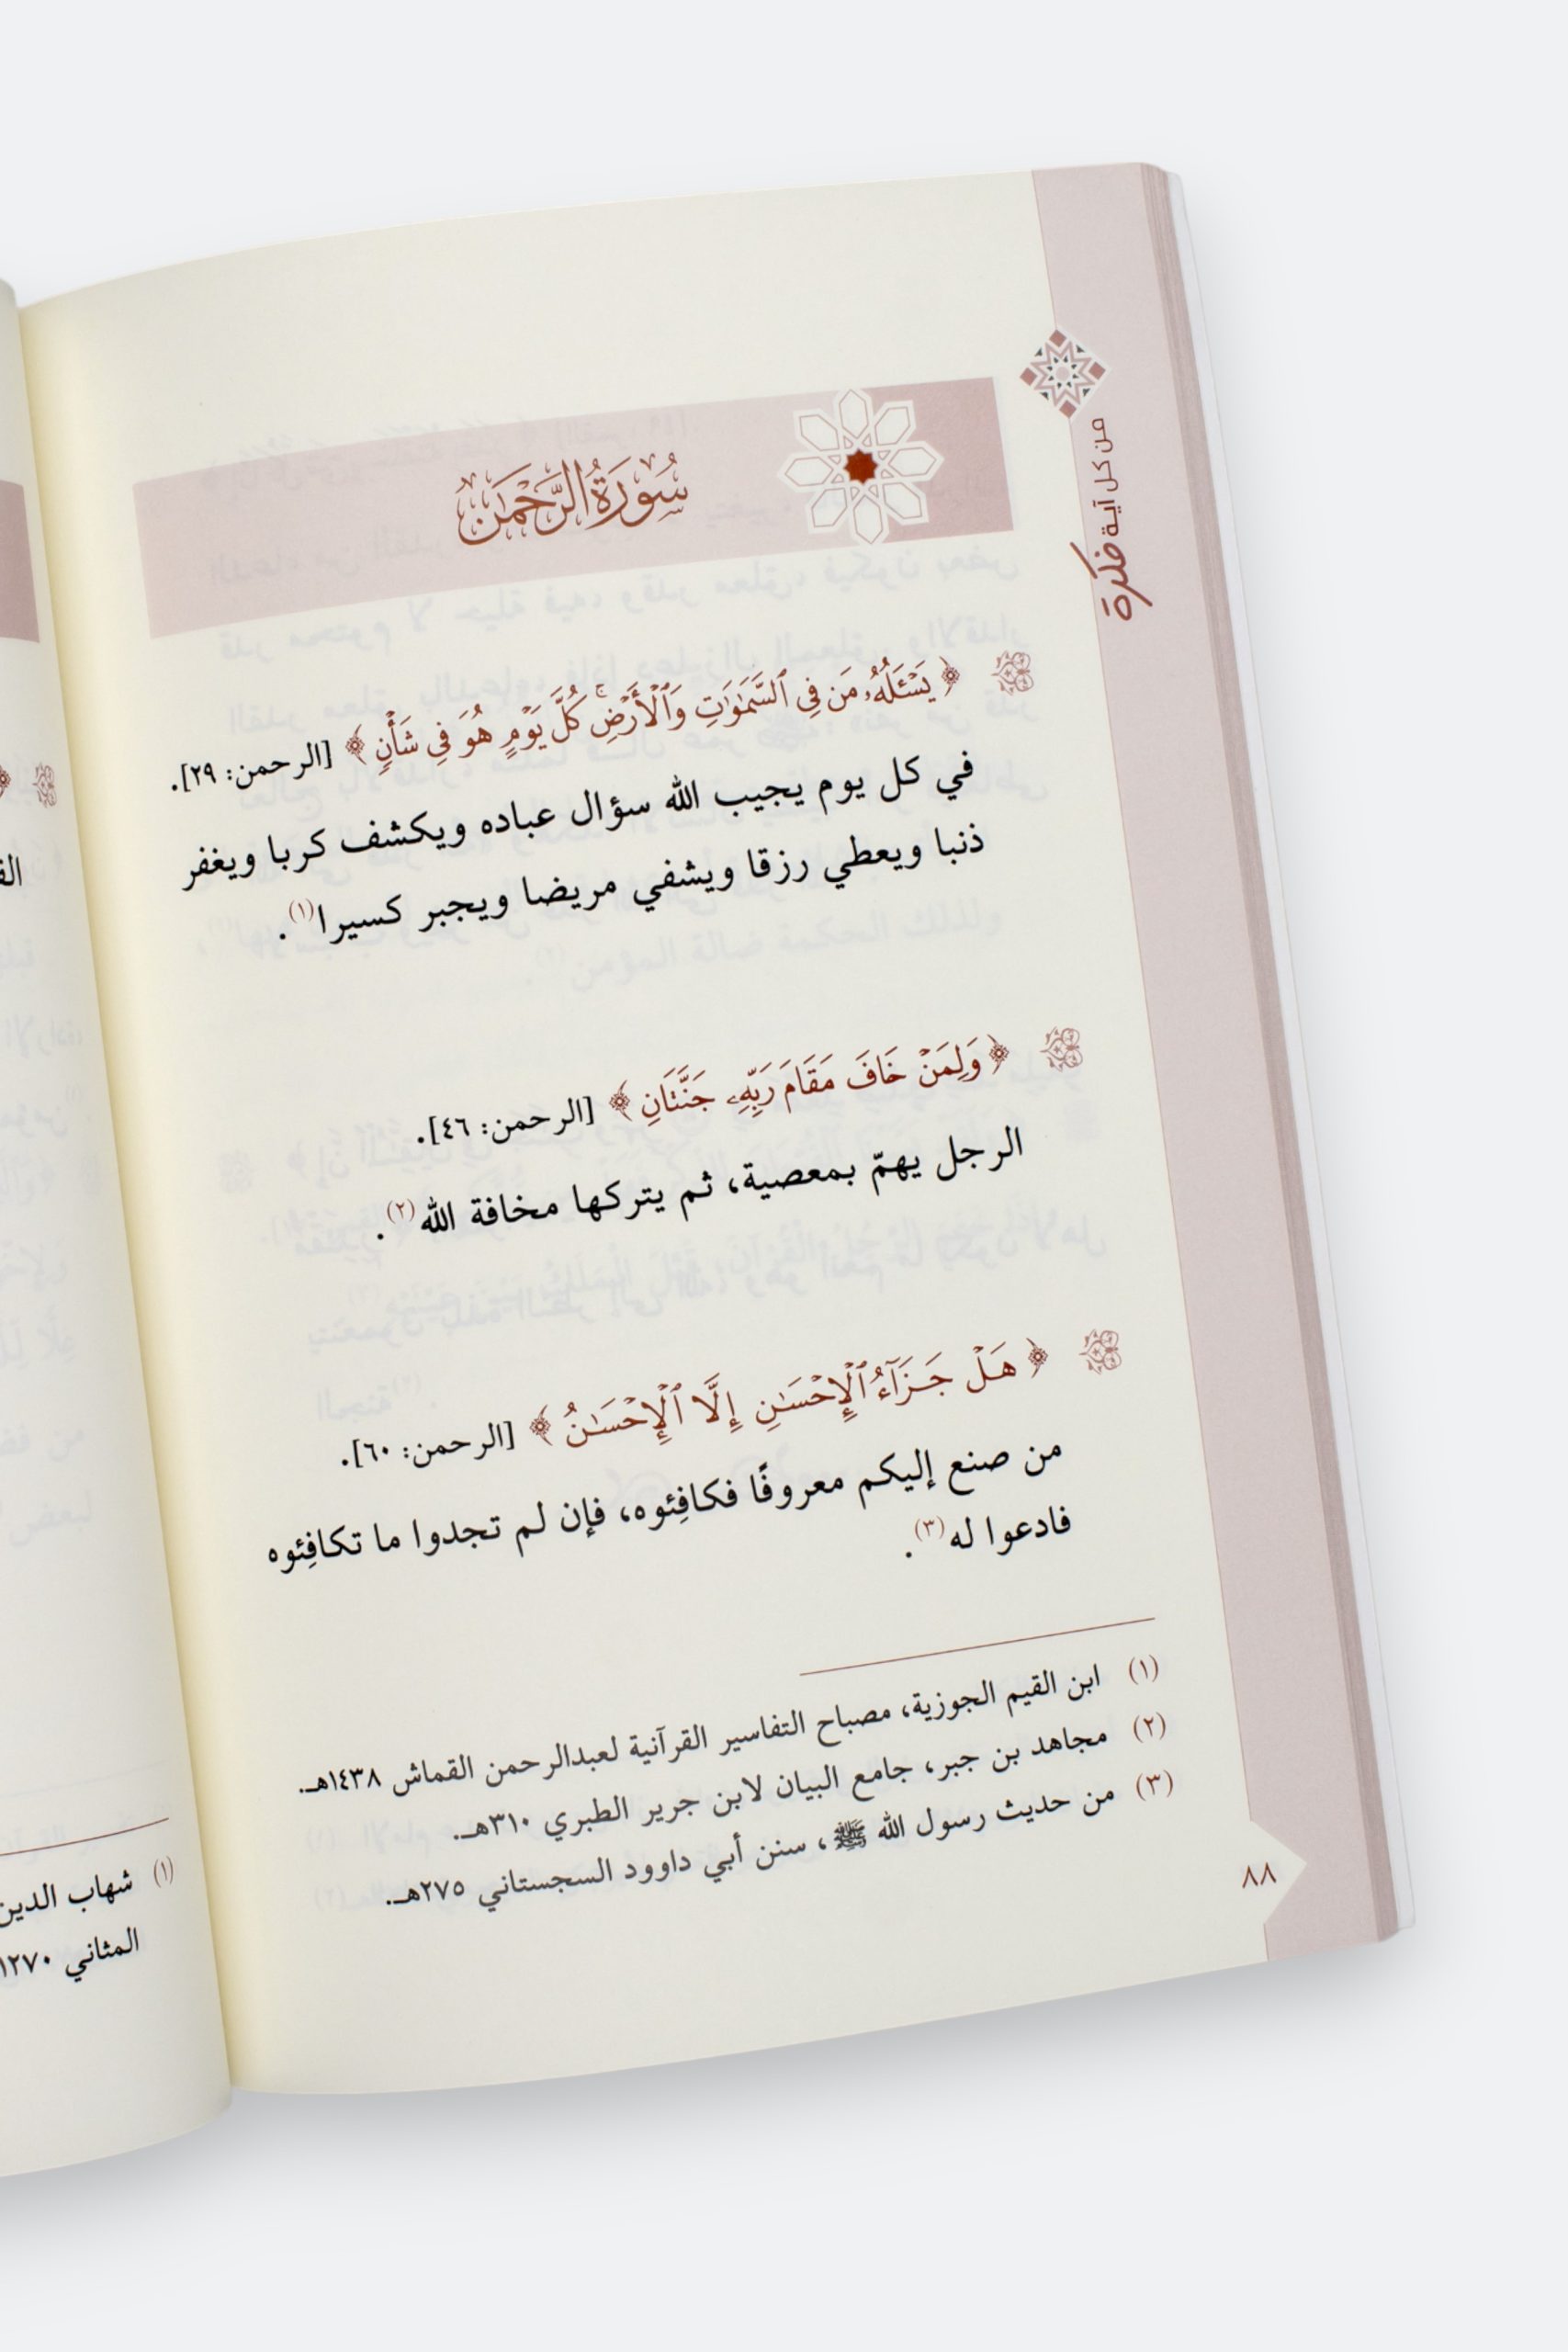 من كل آية فكرة
سُورَةُ الرَّحْمَٰن
﴿ يَسْـَٔلُهُۥ مَن فِي ٱلسَّمَٰوَٰتِ وَٱلْأَرْضِ ۚ كُلَّ يَوْمٍ هُوَ فِي شَأْنٍ ﴾ [الرحمن: ٢٩].
في كل يوم يجيب الله سؤال عباده ويكشف كربا ويغفر
ذنبا ويعطي رزقا ويشفي مريضا ويجبر كسيرا(١).
﴿ وَلِمَنْ خَافَ مَقَامَ رَبِّهِۦ جَنَّتَانِ ﴾ [الرحمن: ٤٦].
الرجل يهمّ بمعصية، ثم يتركها مخافة الله(٢).
﴿ هَلْ جَزَآءُ ٱلْإِحْسَٰنِ إِلَّا ٱلْإِحْسَٰنُ ﴾ [الرحمن: ٦٠].
من صنع إليكم معروفًا فكافِئوه، فإن لم تجدوا ما تكافِئوه
فادعوا له(٣).
(١) ابن القيم الجوزية، مصباح التفاسير القرآنية لعبدالرحمن القماش ١٤٣٨هـ.
(٢) مجاهد بن جبر، جامع البيان لابن جرير الطبري ٣١٠هـ.
(٣) من حديث رسول الله ﷺ، سنن أبي داوود السجستاني ٢٧٥هـ.
٨٨
(١) شهاب الدين
المثاني ١٢٧٠